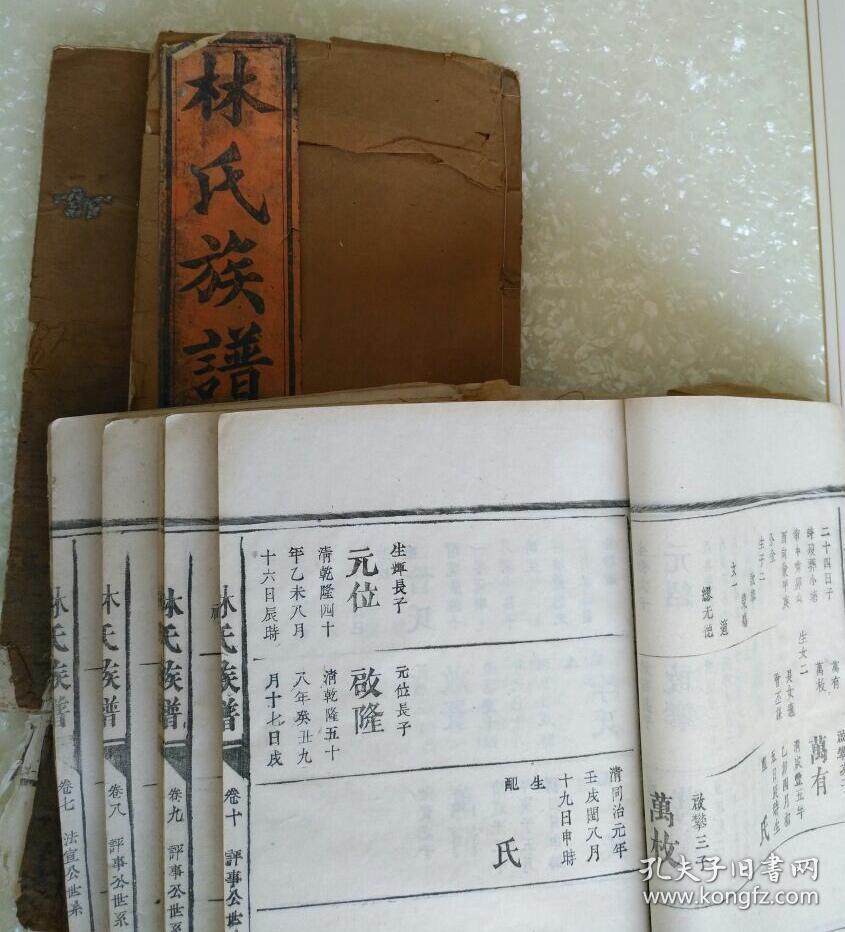 林氏族譜
二十四日子
生子二
繆无
適
生女二
萬有
萬枚
啟攀三子
萬枚
萬有
清咸豐五年
乙卯四月初
五日辰時生
配
氏
生輝長子
元位
清乾隆四十
年乙未八月
十六日辰時
元位長子
啟隆
清乾隆五十
八年癸丑九
月十七日戌
清同治元年
壬戌閏八月
十九日申時
生
配
氏
林氏族譜
卷十
評事公世系
林氏族譜
卷九
評事公世系
林氏族譜
卷八
評事公世系
林氏族譜
卷七
法宣公世系
孔夫子旧书网
www.kongfz.com